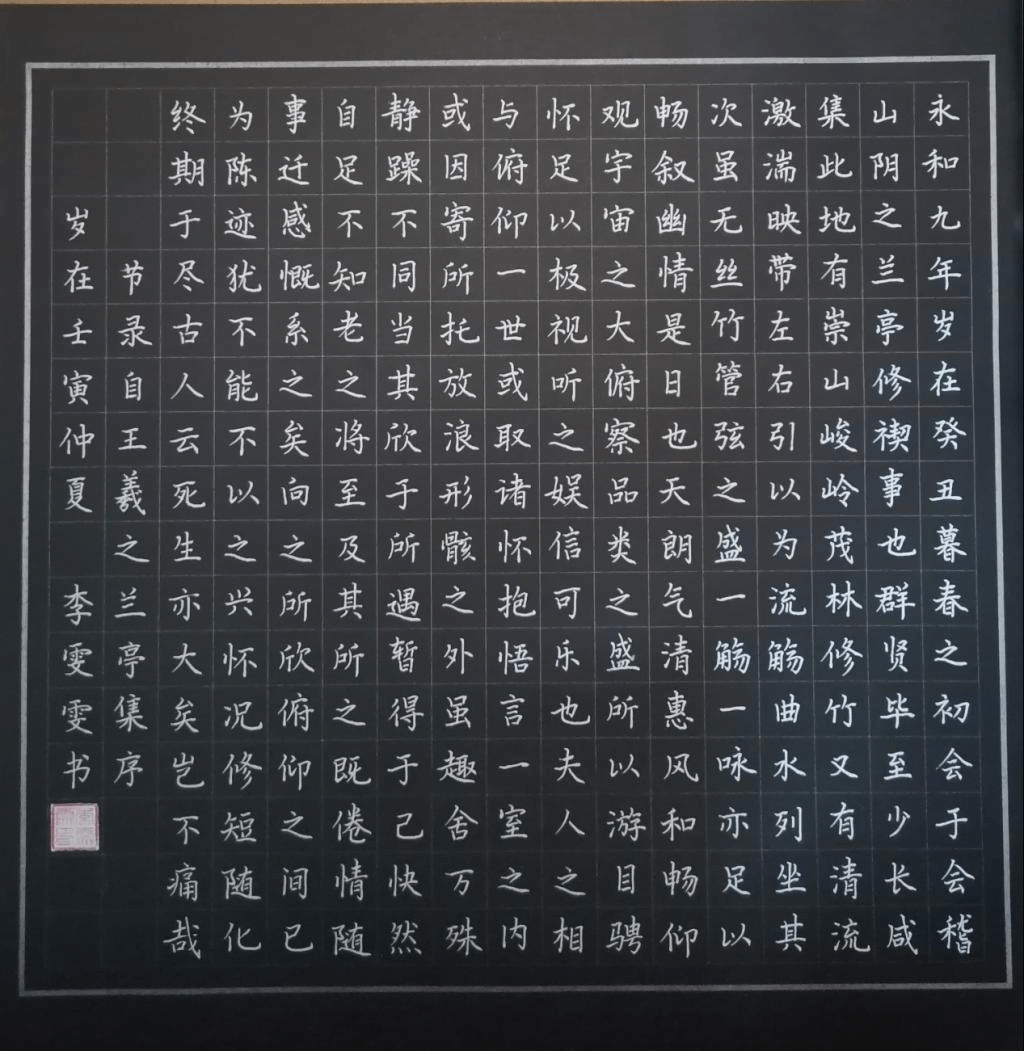 永和九年岁在癸丑暮春之初会于会稽
山阴之兰亭修禊事也群贤毕至少长咸
集此地有崇山峻岭茂林修竹又有清流
激湍映带左右引以为流觞曲水列坐其
次虽无丝竹管弦之盛一觞一咏亦足以
畅叙幽情是日也天朗气清惠风和畅仰
观宇宙之大俯察品类之盛所以游目骋
怀足以极视听之娱信可乐也夫人之相
与俯仰一世或取诸怀抱悟言一室之内
或因寄所托放浪形骸之外虽趣舍万殊
静躁不同当其欣于所遇暂得于己快然
自足不知老之将至及其所之既倦情随
事迁感慨系之矣向之所欣俯仰之间已
为陈迹犹不能不以之兴怀况修短随化
终期于尽古人云死生亦大矣岂不痛哉
节录自王羲之兰亭集序
岁在壬寅仲夏 李雯雯书